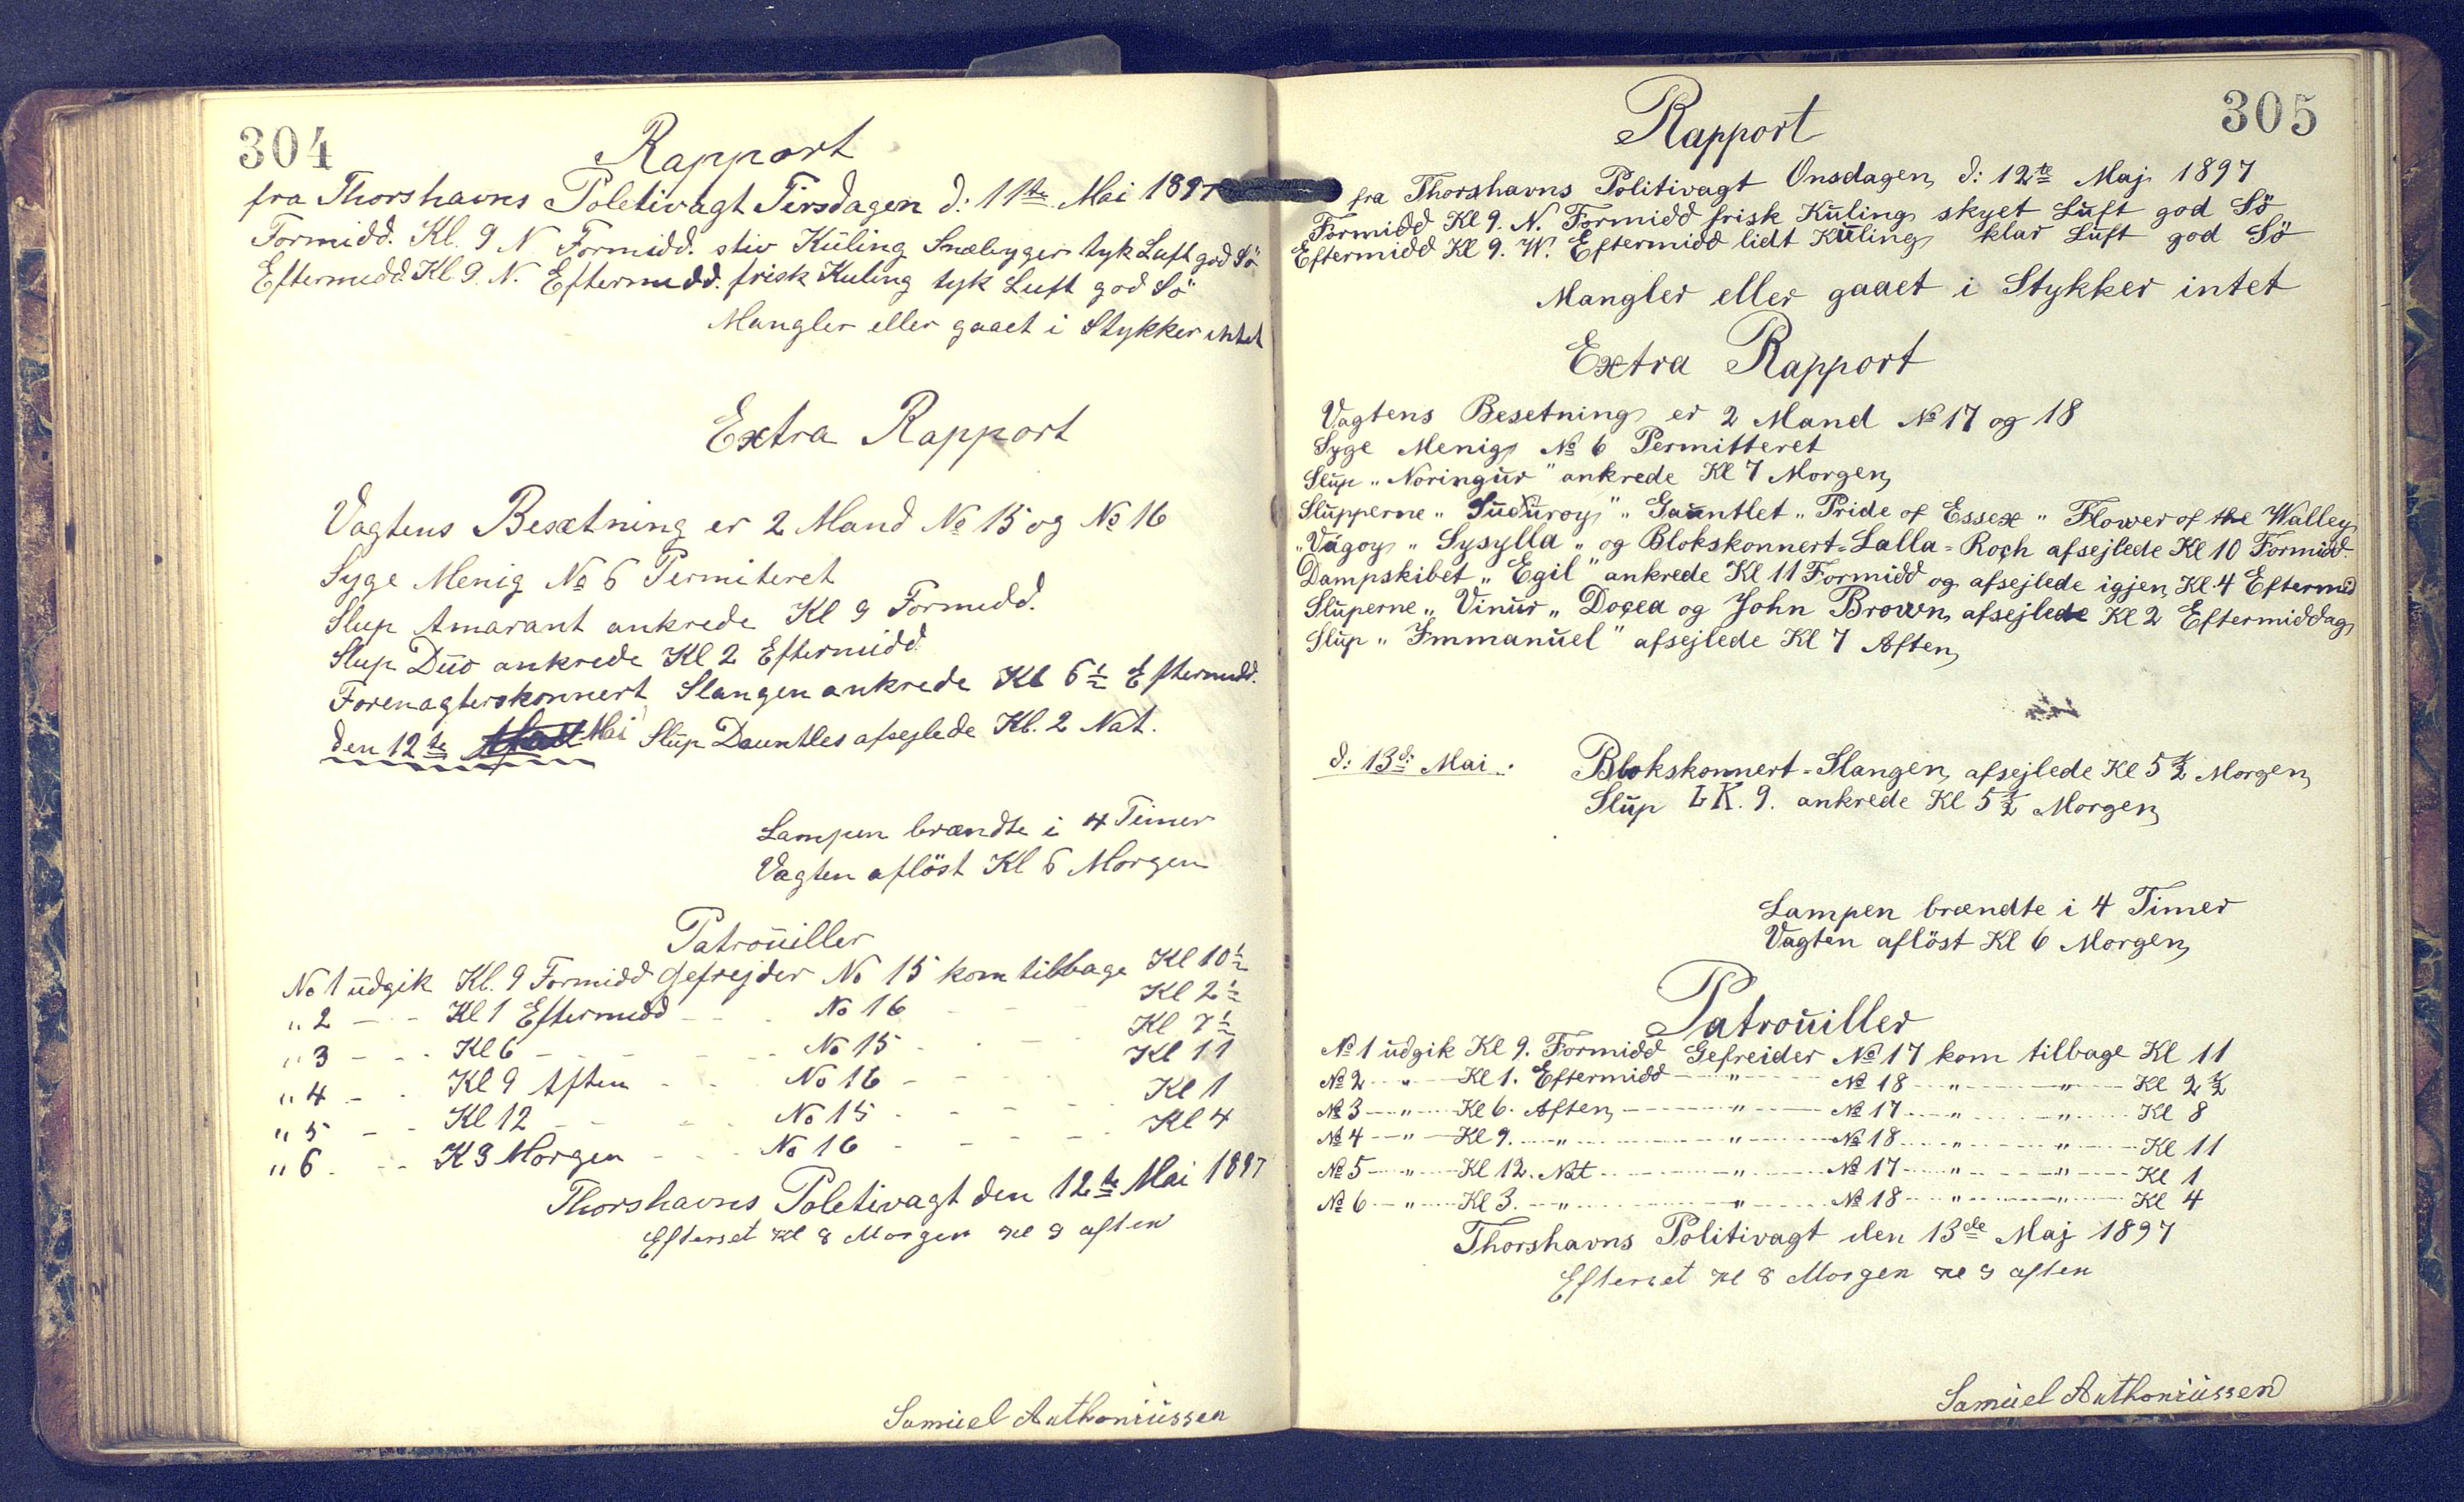 304
Rapport
fra Thorshavns Poletivagt Tirsdagen d: 11te Mai 1897
Formidd. Kl. 9 N Formidd. stiv Kuling Snebyger tyk Luft god Sö
Eftermidd. Kl 9. N. Eftermidd. frisk Kuling tyk Luft god Sö
Mangler eller gaaet i Stykker intet
Extra Rapport
Vagtens Besætning er 2 Mand No 15 og No 16
Syge Menig No 6 Permiteret
Slup Amarant ankrede Kl 9 Formidd.
Slup Duo ankrede Kl 2 Eftermidd
Forenagterskonnert Slangen ankrede Kl 6½ Eftermidd.
den 12te Mai Slup Dauntles afsejlede Kl. 2 Nat.
Lampen brændte i 4 Timer
Vagten aflöst Kl 6 Morgen
Patrouiller
No 1 udgik Kl. 9 Formidd Gefrejder No 15 kom tilbage Kl 10½
" 2 - - Kl 1 Eftermidd - - No 16 - - Kl 2½
" 3 - - Kl 6 - - - No 15 - - Kl 7½
" 4 - - Kl 9 Aften - - No 16 - - Kl 11
" 5 - - Kl 12 - - - No 15 - - Kl 1
" 6 - - K 3 Morgen - - No 16 - - Kl 4
Thorshavns Poletivagt den 12te Mai 1897
Efterset Kl 8 Morgen Kl 9 aften
Samuel Anthoniussen
305
Rapport
fra Thorshavns Politivagt Onsdagen d: 12te Maj 1897
Formidd Kl 9. N. Formidd frisk Kuling skyet Luft god Sö
Eftermidd Kl 9. W. Eftermidd lidt Kuling klar Luft god Sö
Mangler eller gaaet i Stykker intet
Extra Rapport
Vagtens Besetning er 2 Mand No 17 og 18
Syge Menig No 6 Permitteret
Slup „Noringur" ankrede Kl 7 Morgen
Slupperne „Suduroy" „Gauntlet „Pride of Essex „Flower of the Walley
„Vágoy „Sysylla „ og Blokskonnert=Lalla=Roch afsejlede Kl 10 Formidd.
Dampskibet „Egil" ankrede Kl 11 Formidd og afsejlede igjen Kl. 4 Eftermid
Sluperne „Vinur „Docea og John Brown afsejlede Kl 2 Eftermiddag
Slup „Immanuel" afsejlede Kl 7 Aften
d: 13d: Mai. Blokskonnert=Slangen afsejlede Kl 5½ Morgen
Slup LK. 9. ankrede Kl 5½ Morgen
Lampen brændte i 4 Timer
Vagten aflöst Kl 6 Morgen
Patrouiller
No 1 udgik Kl 9. Formidd Gefreider No 17 kom tilbage Kl 11
No 2 " Kl 1. Eftermidd " No 18 " " Kl 2½
No 3 " Kl 6. Aften " No 17 " " Kl 8
No 4 " Kl 9. " " No 18 " " Kl 11
No 5 " Kl 12. Nat " No 17 " " Kl 1
No 6 " Kl 3. " " No 18 " " Kl 4
Thorshavns Politivagt den 13de Maj 1897
Efterset Kl 8 Morgen Kl 9 aften
Samuel Anthoniussen